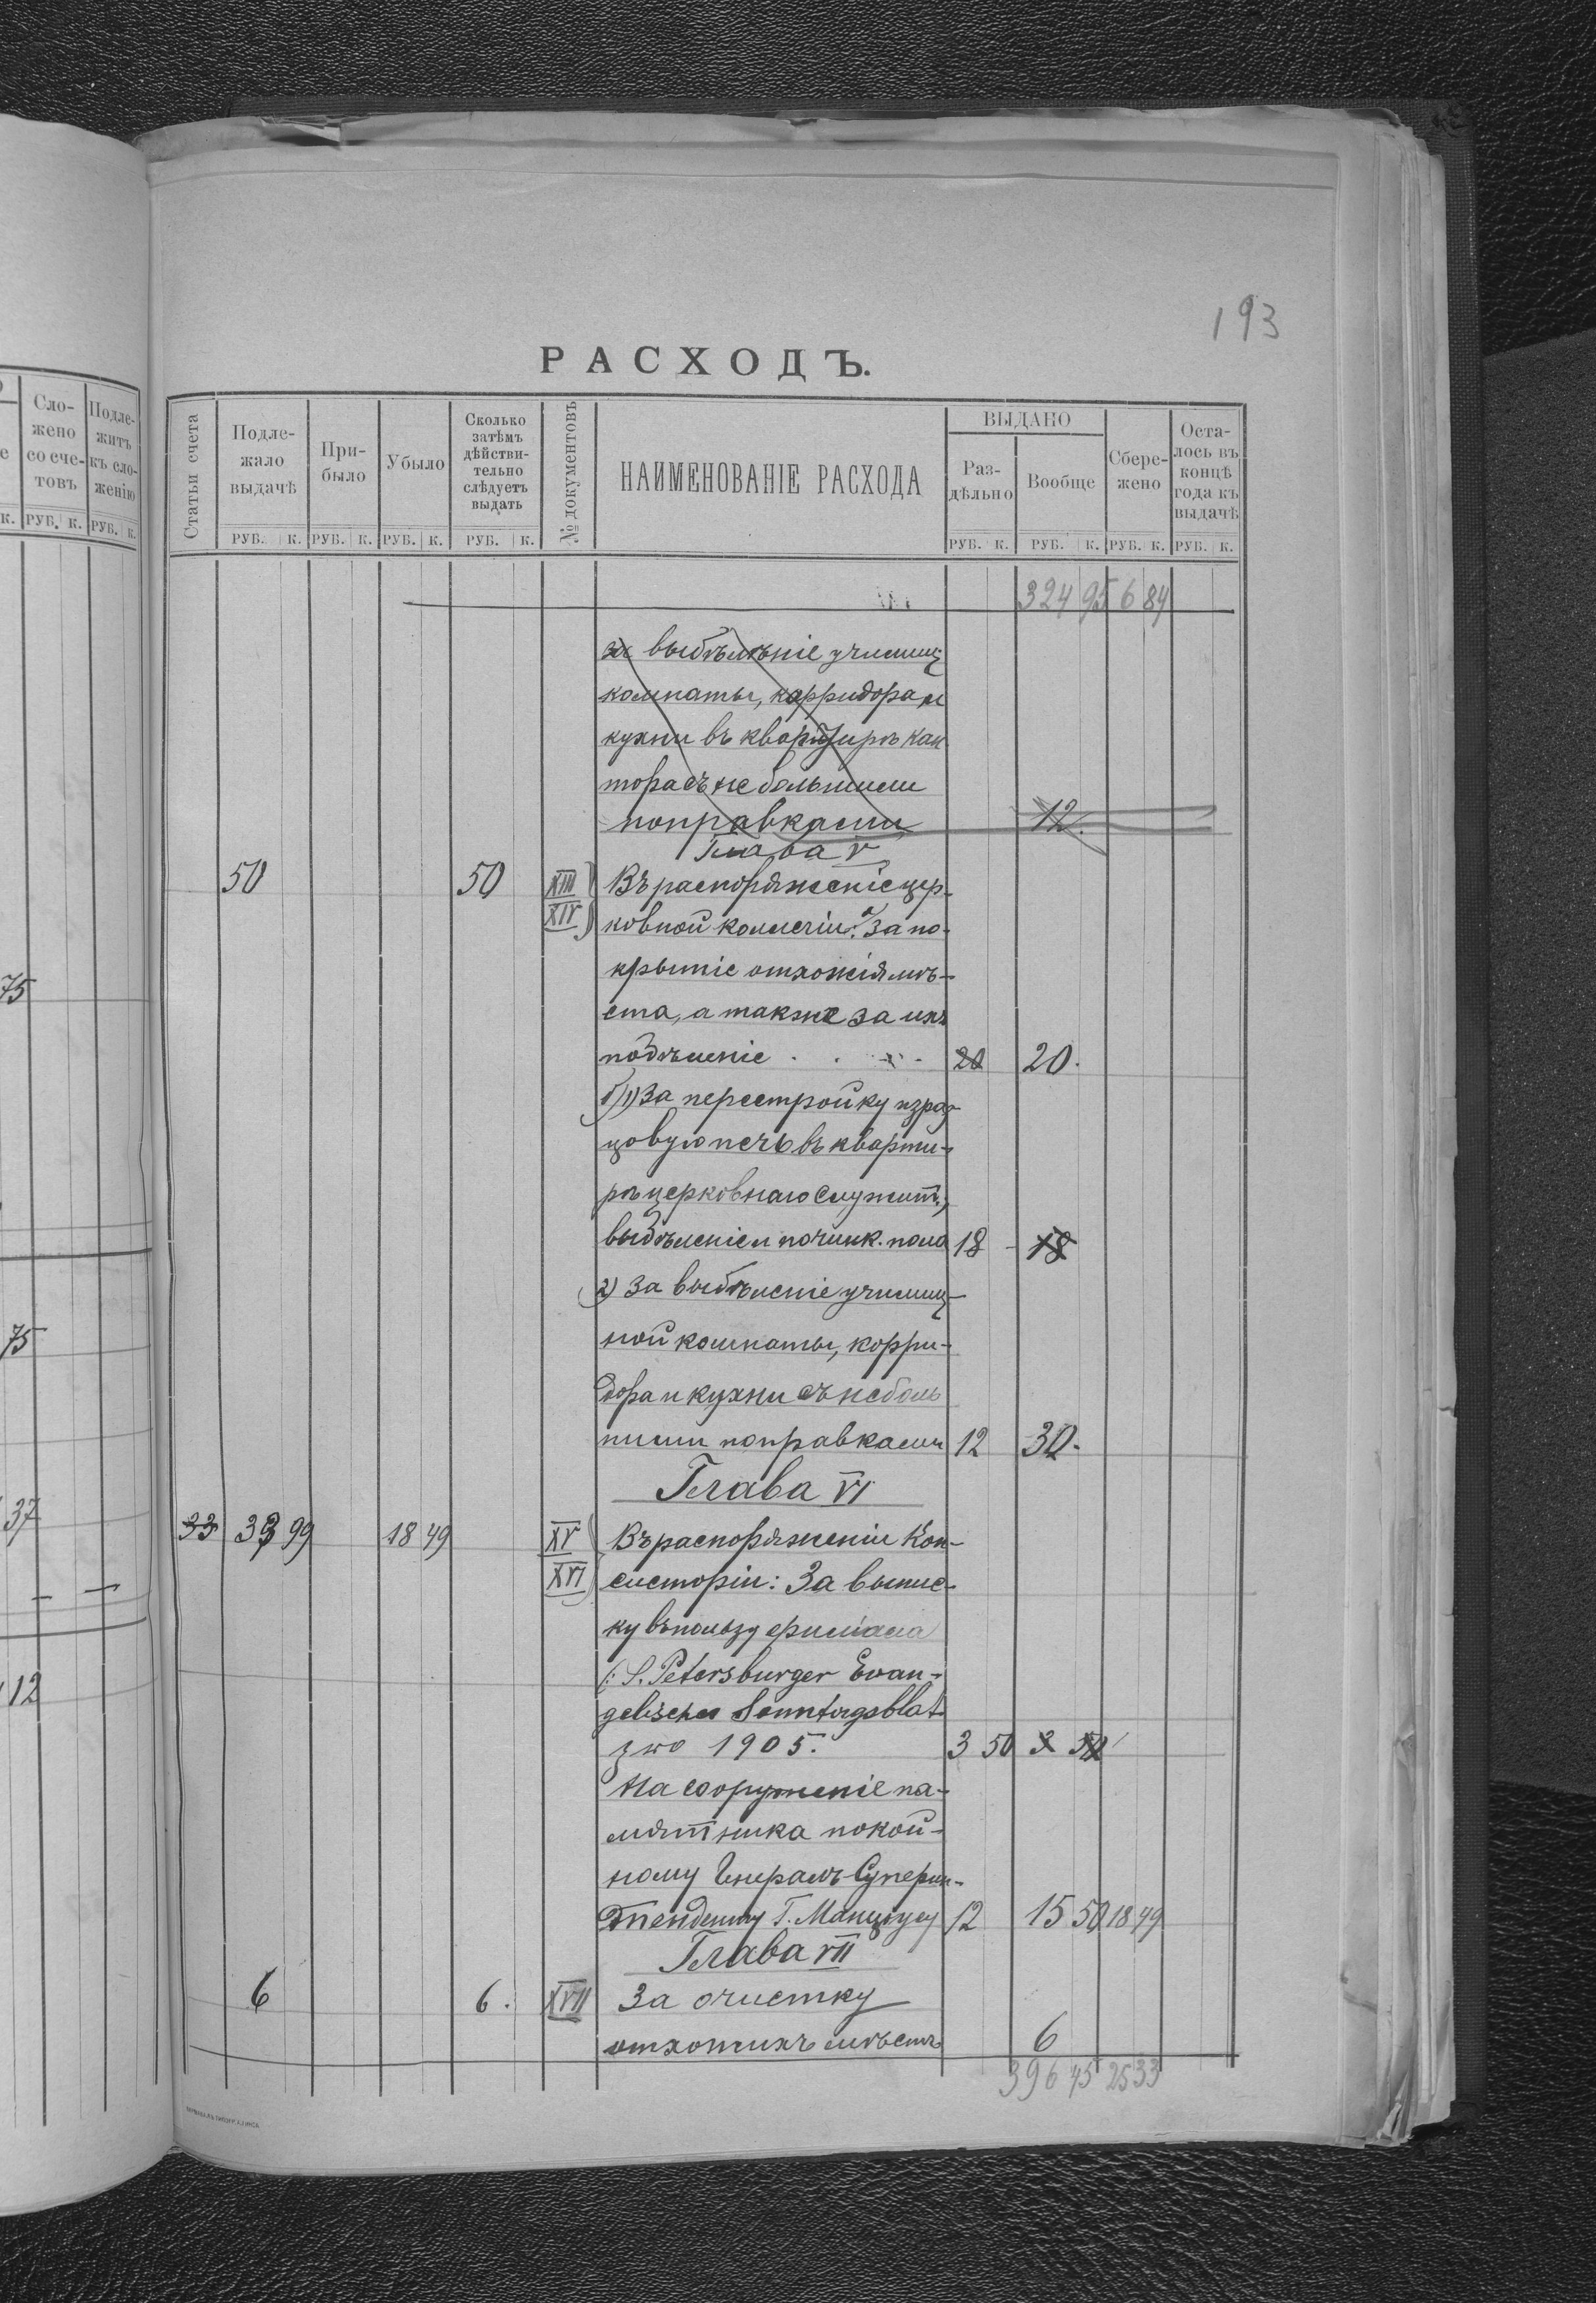 193
РАСХОДЪ.
Сло-
жено
со сче-
товъ
Подле-
житъ
къ сло-
женію
к. РУБ. К. РУБ. К.
Статьи счета
Подле-
жало
выдачѣ
При-
было
Убыло
Сколько
затѣмъ
дѣйстви-
тельно
слѣдуетъ
выдать
№ документовъ
НАИМЕНОВАНІЕ РАСХОДА
ВЫДАНО
Раз-
дѣльно
Вообще
Сбере-
жено
Оста-
лось въ
концѣ
года къ
выдачѣ
РУБ. К. РУБ. К. РУБ. К. РУБ. К. РУБ. К. РУБ. К. РУБ. К. РУБ. К.
324 95 6 84
за выбѣленіе училищ
комнаты, корридора и
кухни въ квартирѣ кан
тора съ небольшими
поправками 12.
Глава V
50 50 XIII Въ распоряженіе цер-
XIV ковной коллегіи: а/ За по-
крытіе отхожія мѣ-
ста, а также за ихъ
побѣленіе . . . . 20 20.
б) 1) За перестройку израз-
цовую печь въ кварти-
рѣ церковнаго служит.,
выбѣленіе и починк. пола 18 - 18
2) За выбѣленіе училищ-
ной комнаты, корри-
дора и кухни съ неболь
шими поправками 12 30.
Глава VI
33 33 99 18 49 XV Въ распоряженіи Кон-
XVI систоріи: За выпис-
ку въ пользу филіала
(: S. Petersburger Evan-
gelisches Sonntagsblat
pro 1905. 3 50 3 50
На сооруженіе па-
мятника покой-
ному Генералъ-Суперин-
тенденту Г. Манцгусу 12 15 50 18 49
Глава VII
6 6. XVII За очистку
отхожихъ мѣстъ 6
396 45 25 33
75
75
37
12